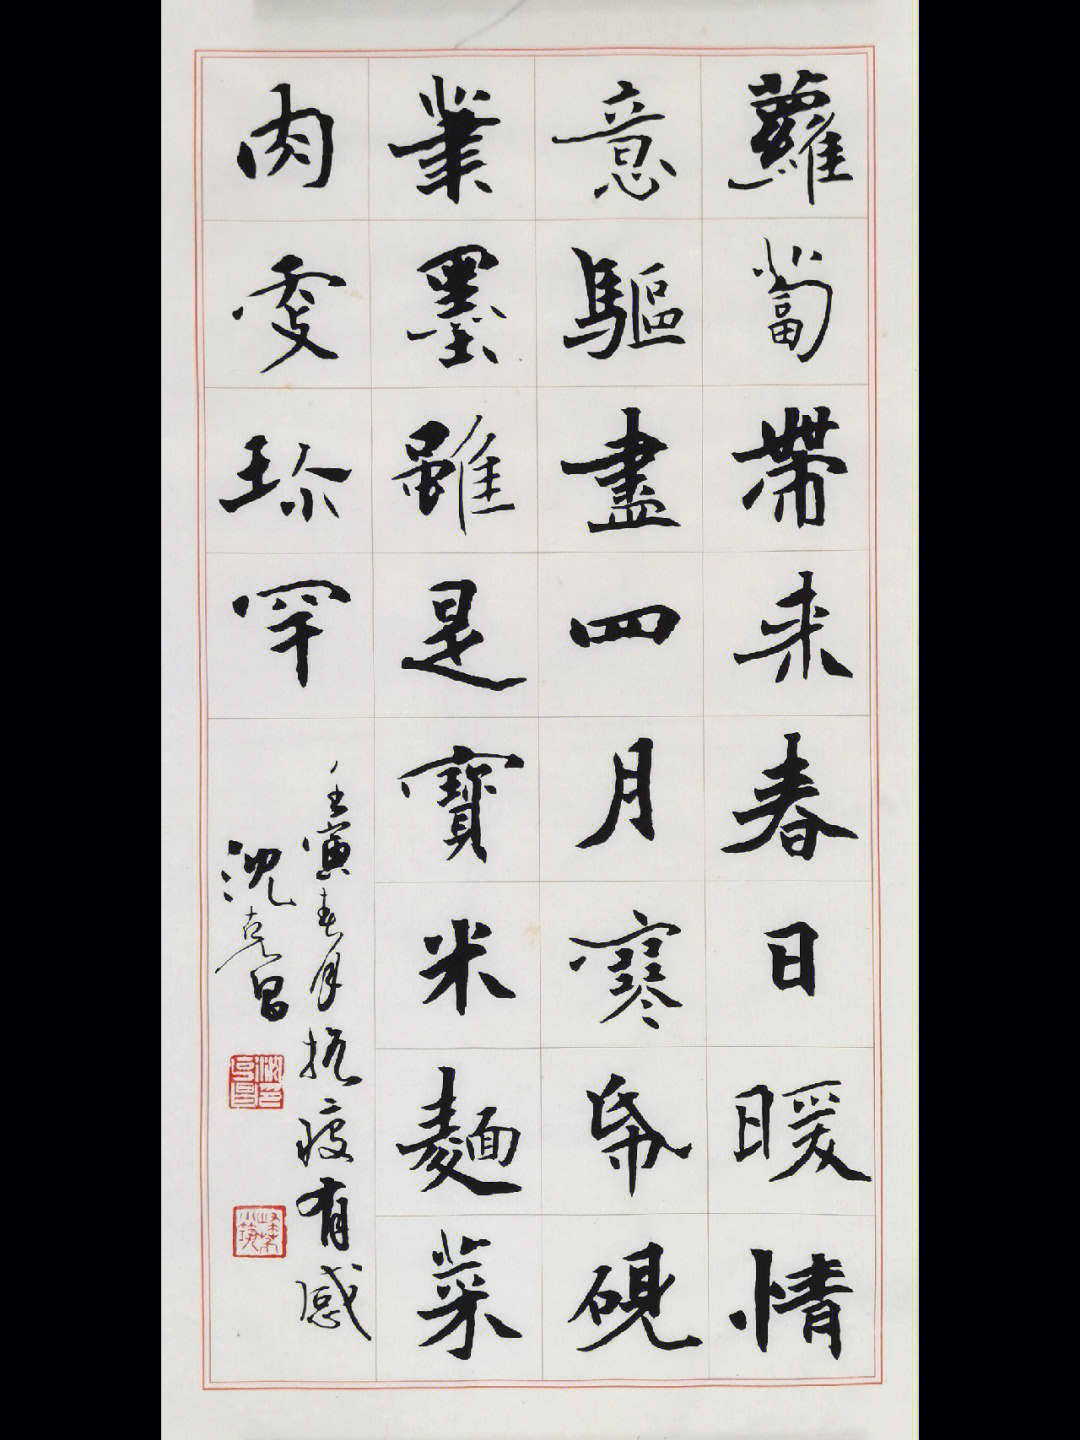 蘿蔔帶来春日暖情
意驅盡四月寒帋硯
筆墨雖是寶米麵菜
肉更珍罕
壬寅春月抗疫有感
沈克昌